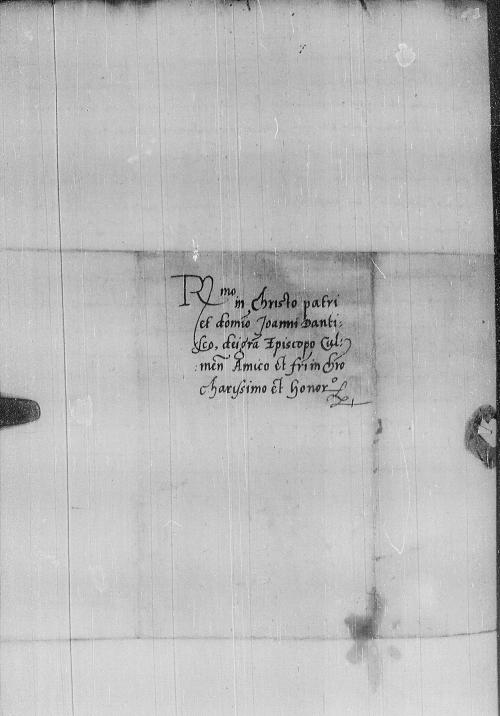 R mo
in Christo patri
et domio Joanni Danti:
sco, dei grã Episcopo Cul:
:meñ Amico et fri in chro
charissimo et honor º